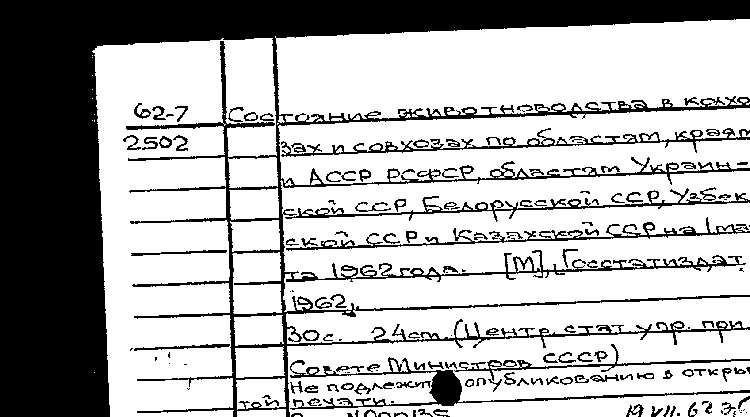 62-7 Состояние животноводства в колхо
2502 зах и совхозах по областям, краям
и АССР РСФСР, областям Украин-
ской ССР, Белорусской ССР, Узбек
ской ССР и Казахской ССР на 1 мар
та 1962 года. [М], Госстатиздат
1962,.
30с. 24см. (Центр. стат. упр. при.
Совете Министров СССР)
Не подлежит опубликованию в откры
той печати.
19 VII. 62